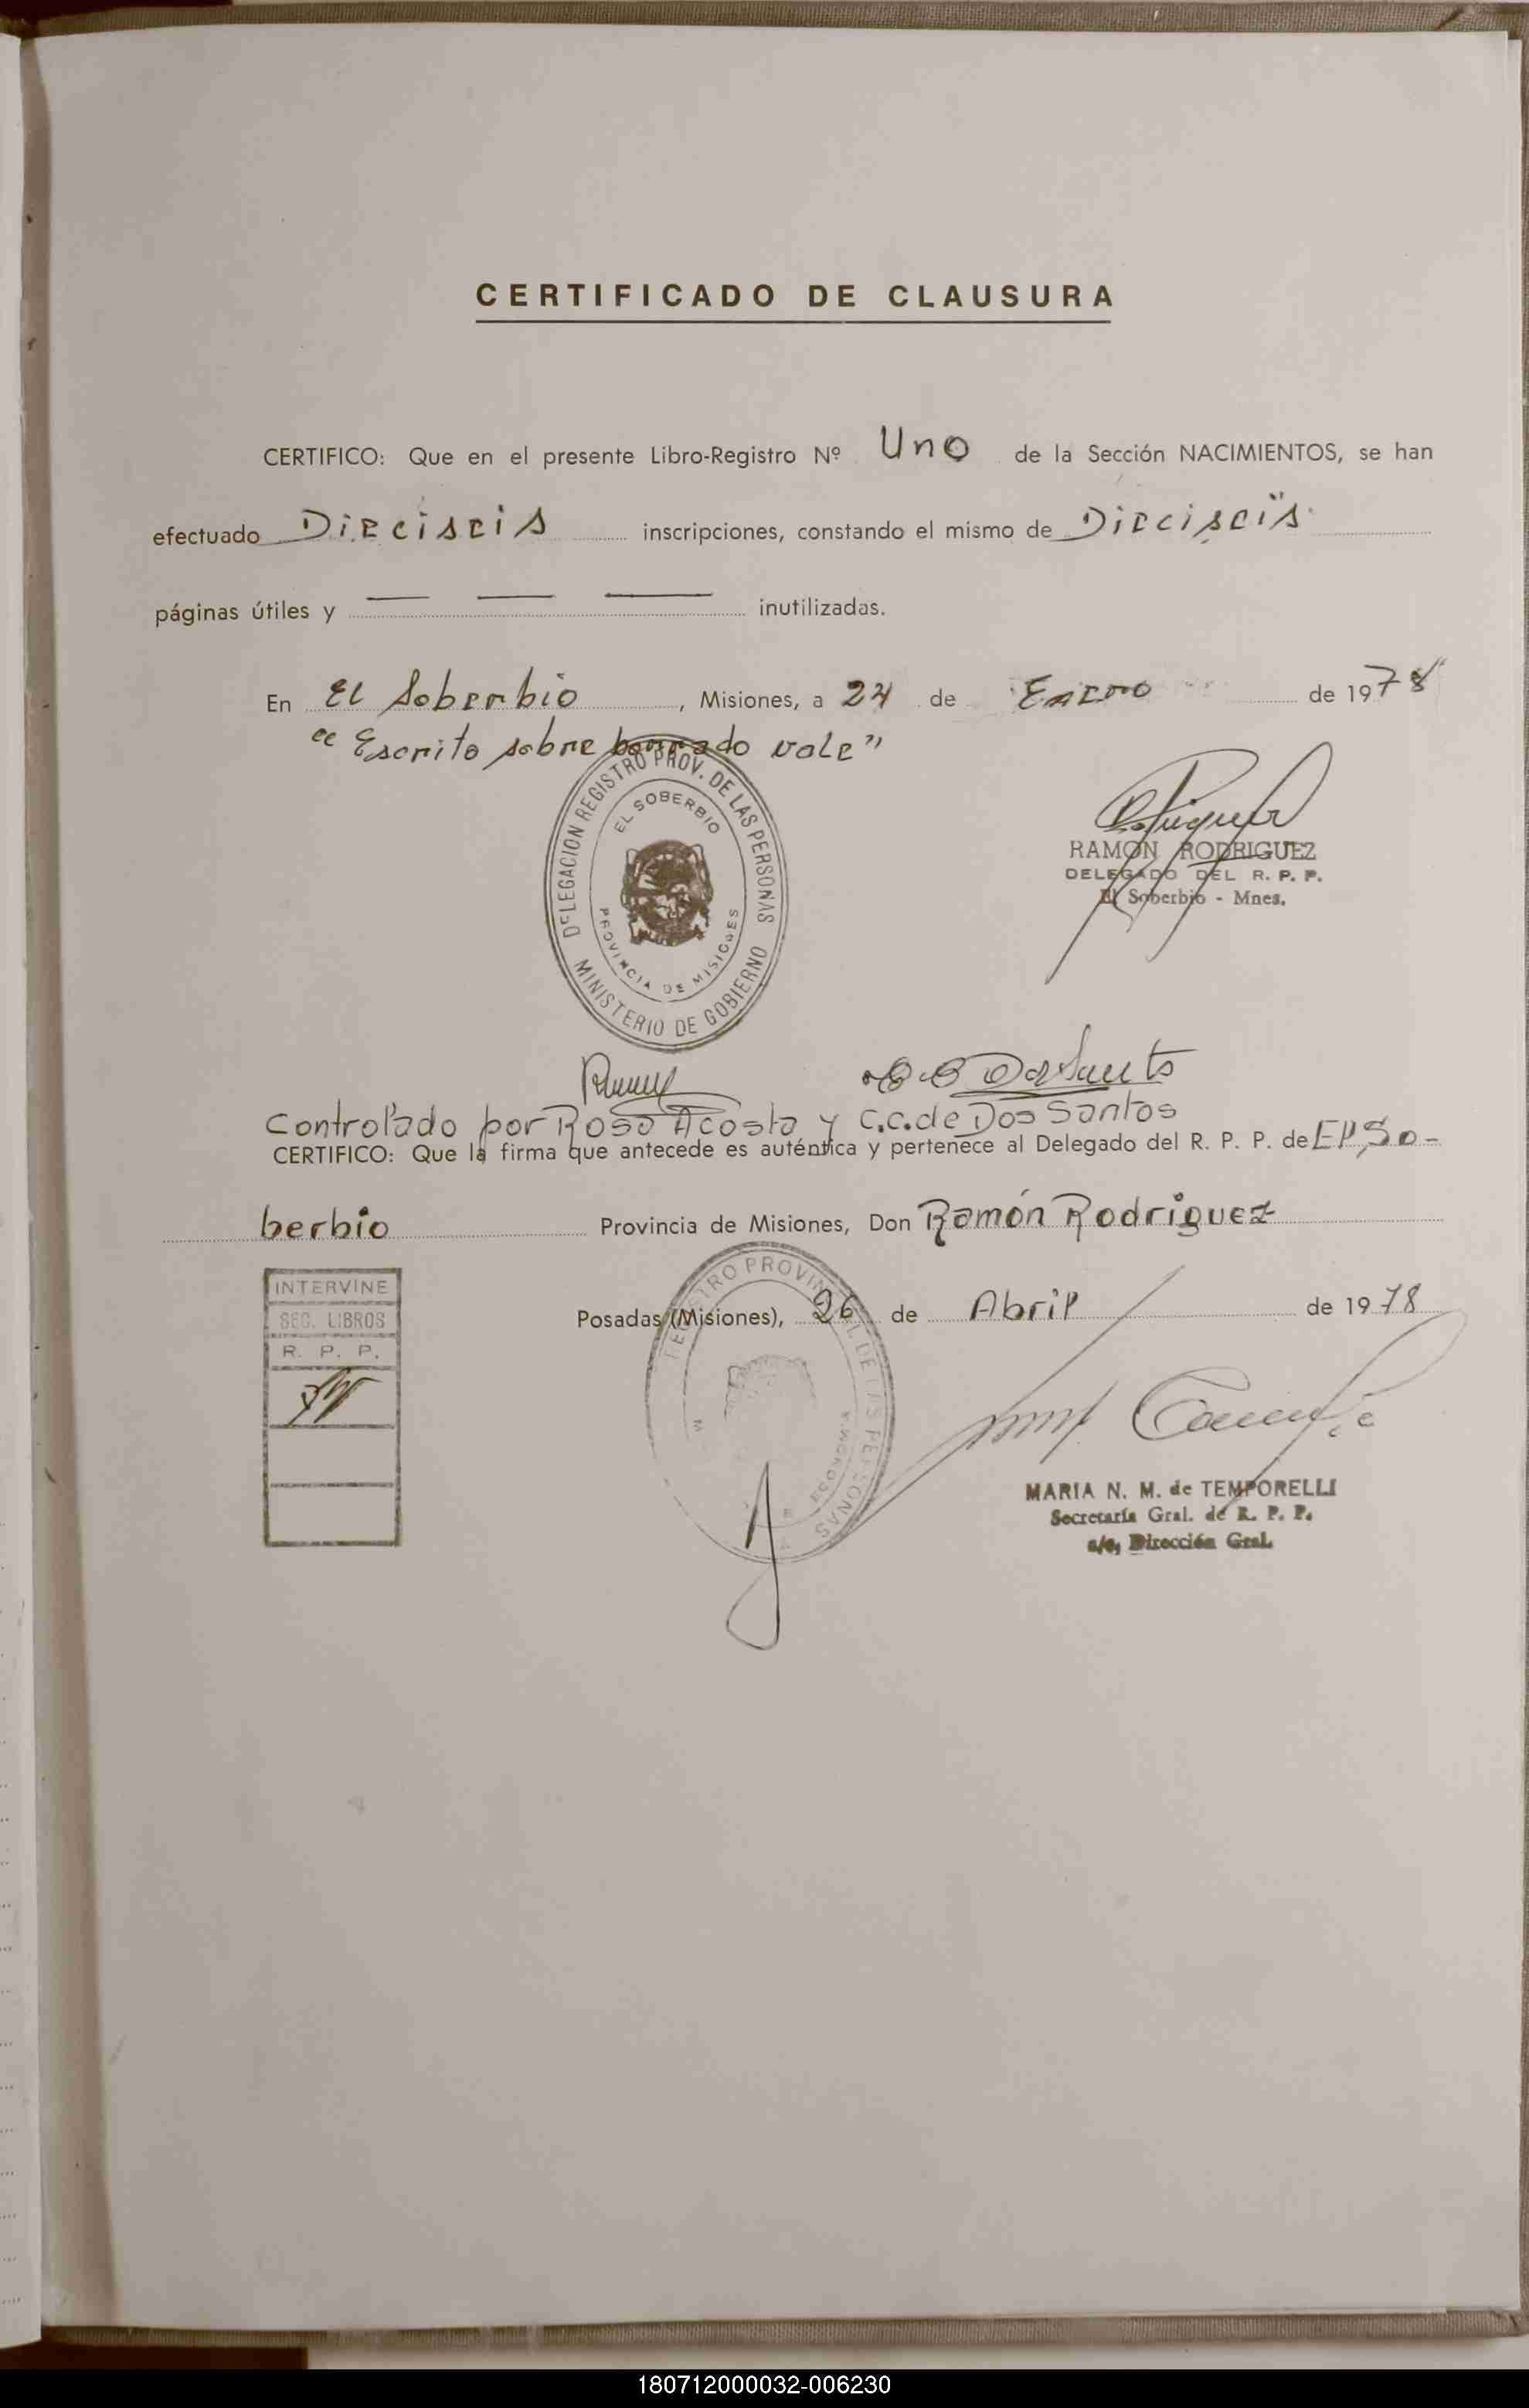 CERTIFICADO DE CLAUSURA
CERTIFICO: Que en el presente Libro-Registro Nº Uno de la Sección NACIMIENTOS, se han
efectuado Dieciseis inscripciones, constando el mismo de Dieciseis
páginas útiles y — — — inutilizadas.
En El Soberbio, Misiones, a 24 de Enero de 1978
"Escrito sobre borrado vale"
DELEGACION REGISTRO PROV. DE LAS PERSONAS
MINISTERIO DE GOBIERNO
EL SOBERBIO
PROVINCIA DE MISIONES
RAMON RODRIGUEZ
DELEGADO DEL R. P. P.
El Soberbio - Mnes.
Controlado por Rosa Acosta y C.C. de Dos Santos
CERTIFICO: Que la firma que antecede es auténtica y pertenece al Delegado del R. P. P. de El So-
berbio Provincia de Misiones, Don Ramón Rodriguez
Posadas (Misiones), 26 de Abril de 1978
INTERVINE
SEC. LIBROS
R. P. P.
PROVINCIAL DE LAS PERSONAS
MARIA N. M. de TEMPORELLI
Secretaría Gral. de R. P. P.
a/c, Dirección Gral.
180712000032-006230